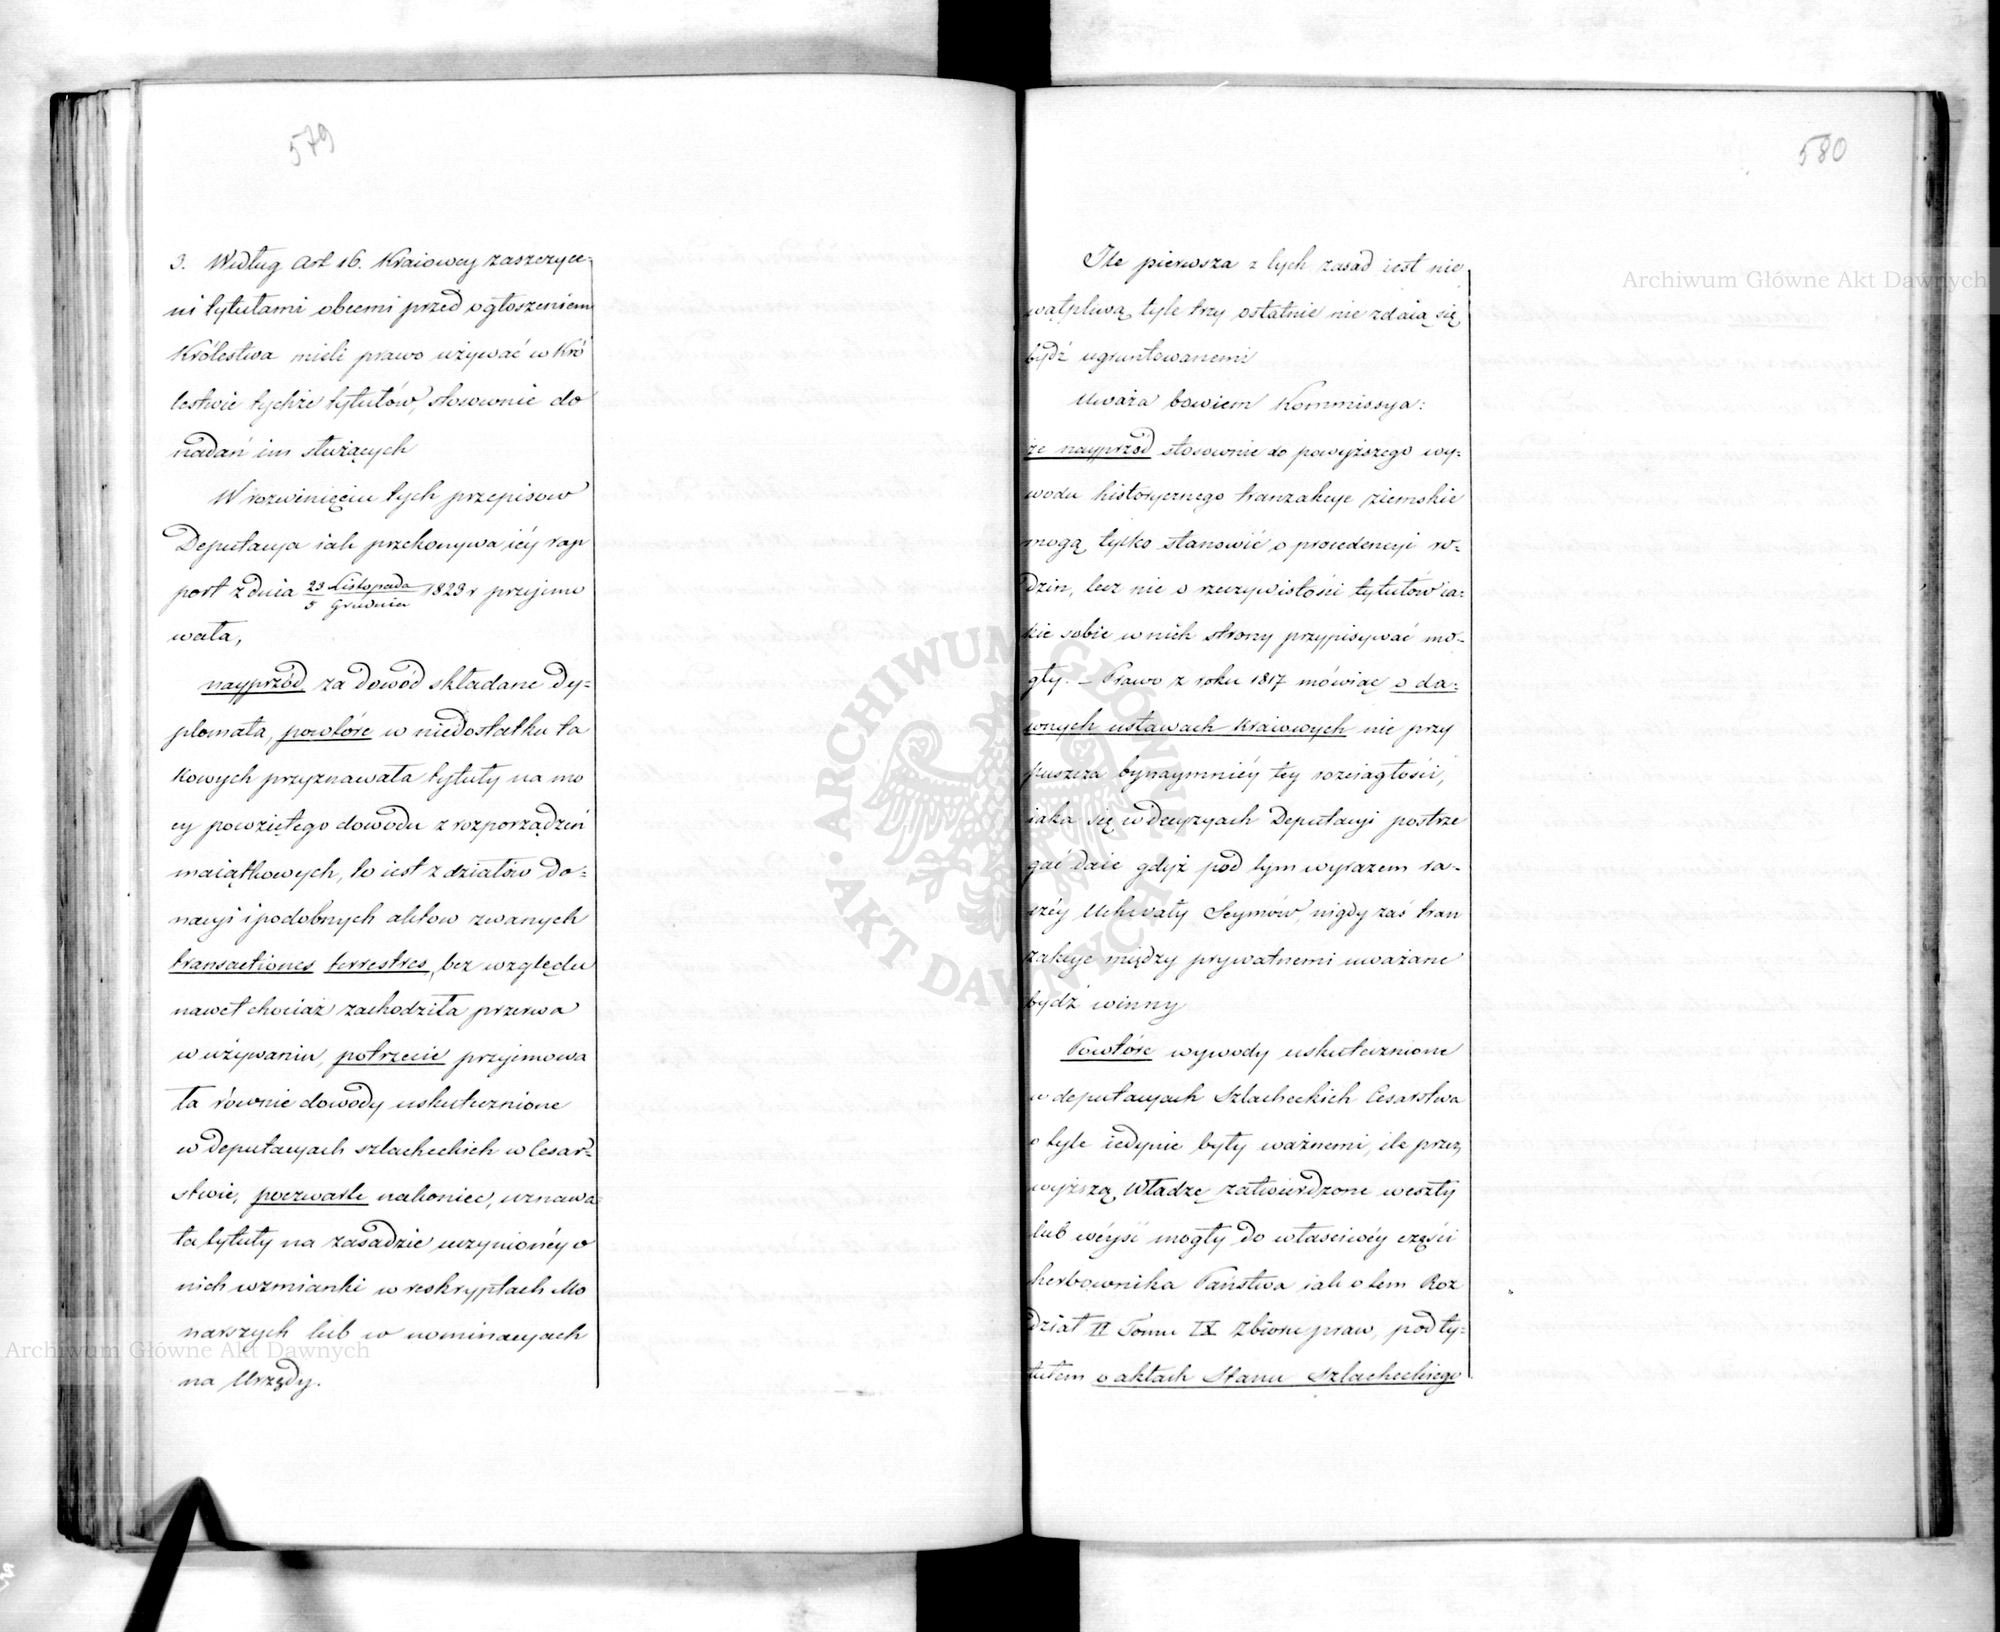 579
3. Według Art 16. Kraiowcy zaszczyce-
ni tytułami obcemi przed ogłoszeniem
Królestwa mieli prawo używać w Kró
lestwie tychże tytułów, stosownie do
nadań im służących
W rozwinięciu tych przepisow
Deputacya iak przekonywa iéy rap
port z dnia 23 Listopada / 5 Grudnia 1823 r przyjmo
wała,
nayprzód za dowód składane dy-
plomata, powtóre w niedostatku ta
kowych przyznawała tytuły na mo
cy powziętego dowodu z rozporządzeń
maiątkowych, to iest z działów do-
nacyi i podobnych aktow zwanych
transactiones terrestres, bez względu
nawet chociaż zachodziła przerwa
w używaniu, potrzecie przyjmowa
ła równie dowody uskutecznione
w deputacyach szlacheckich w Cesar-
stwie, poczwarte nakoniec, uznawa-
ła tytuły na zasadzie uczynionéy o
nich wzmianki w reskryptach Mo
narszych lub w nominacyach
na Urzędy.
580
Ile pierwsza z tych zasad iest nie
wątpliwą, tyle trzy ostatnie nie zdaią się
bydź ugruntowanemi
Uważa bowiem Kommissya:
że nayprzod stosownie do powyższego wy-
wodu historycznego tranzakcye ziemskie
mogą tylko stanowić o procedencyi ro-
dzin, lecz nie o rzeczywistości tytułów ia-
kie sobie w nich strony przypisywać mo-
gły. – Prawo z roku 1817 mówiąc o da-
wnych ustawach kraiowych nie przy
puszcza bynaymniéy tey rozciągłości,
iaka się w decyzyach Deputacyi postrze
gać daie gdyż pod tym wyrazem ra-
czéy Uchwały Seymów, nigdy zaś tran
zakcye między prywatnemi uważane
bydź winny
Powtóre wywody uskutecznione
w deputacyach Szlacheckich Cesarstwa
o tyle iedynie były ważnemi, ile przez
wyższą Władzę zatwierdzone weszły
lub wéyść mogły do właściwéy części
herbownika Państwa iak o tem Roz
dział II Tomu IX Zbioru praw, pod ty-
tułem o aktach Stanu Szlacheckiego
Archiwum Główne Akt Dawnych
Archiwum Główne Akt Dawnych
ARCHIWUM GŁÓWNE AKT DAWNYCH